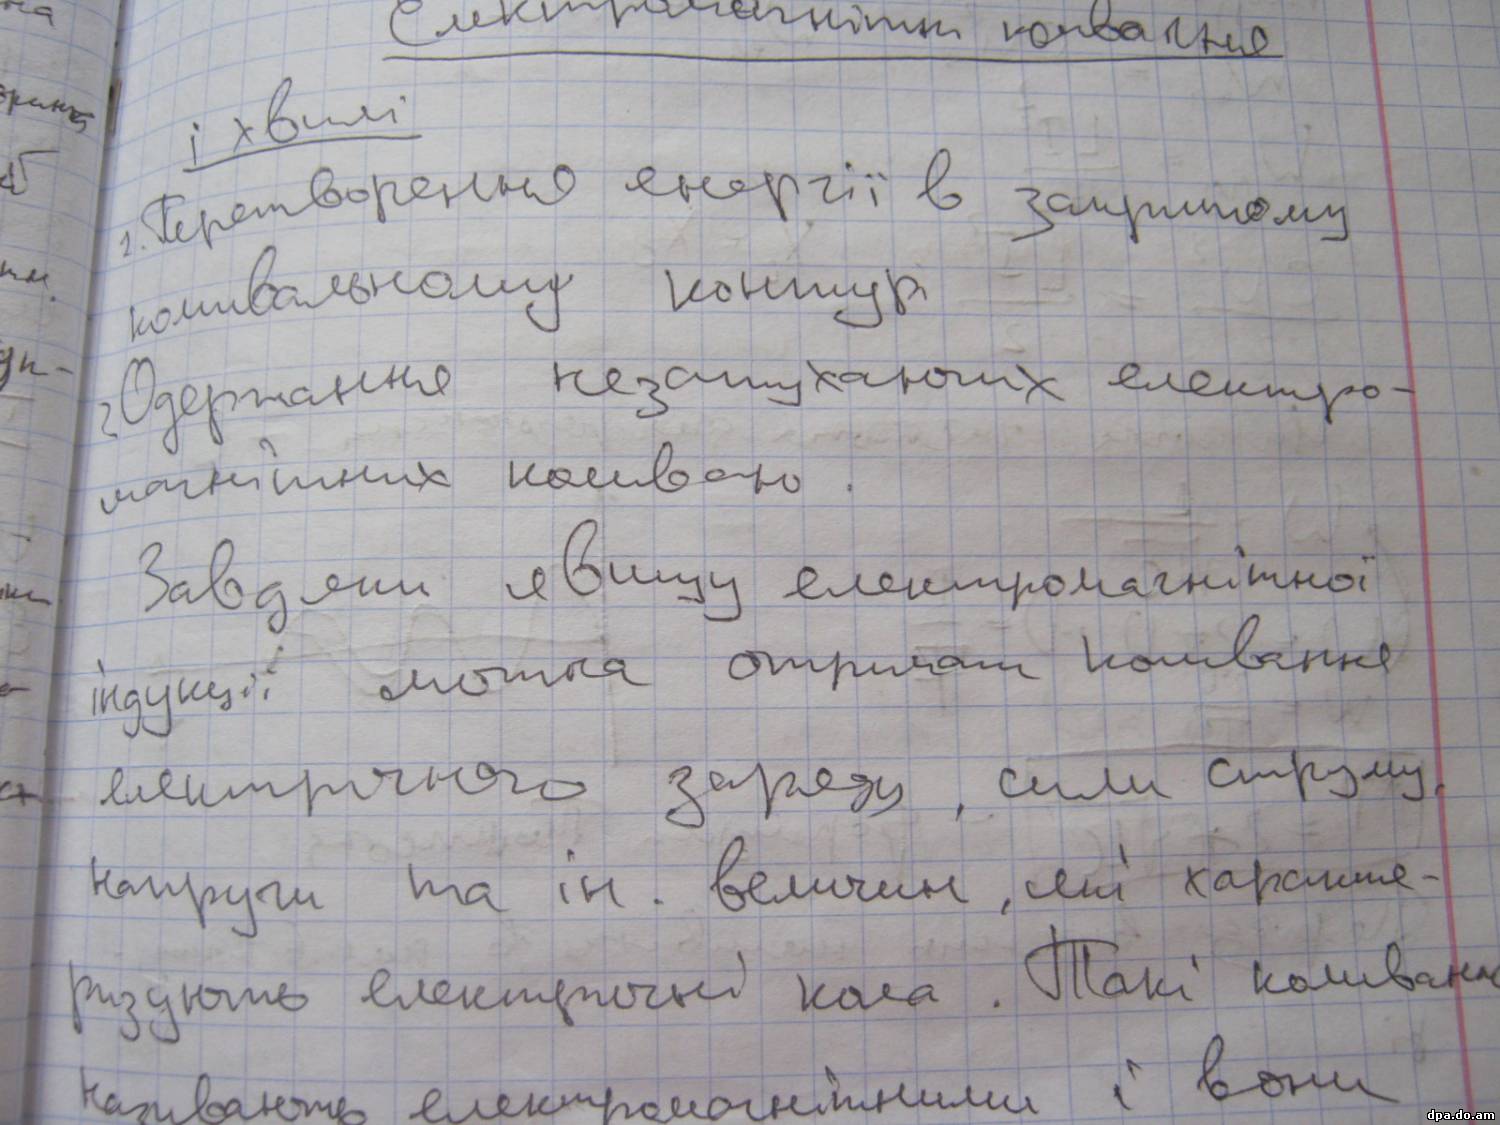 Електромагнітні коливання
і хвилі
1. Перетворення енергії в закритому
коливальному контурі
2. Одержання незатухаючих електро-
магнітних коливань.
Завдяки явищу електромагнітної
індукції можна отримати коливання
електричного заряду, сили струму,
напруги та ін. величин, які характе-
ризують електричні кола. Такі коливання
називають електромагнітними і вони
dpa.do.am